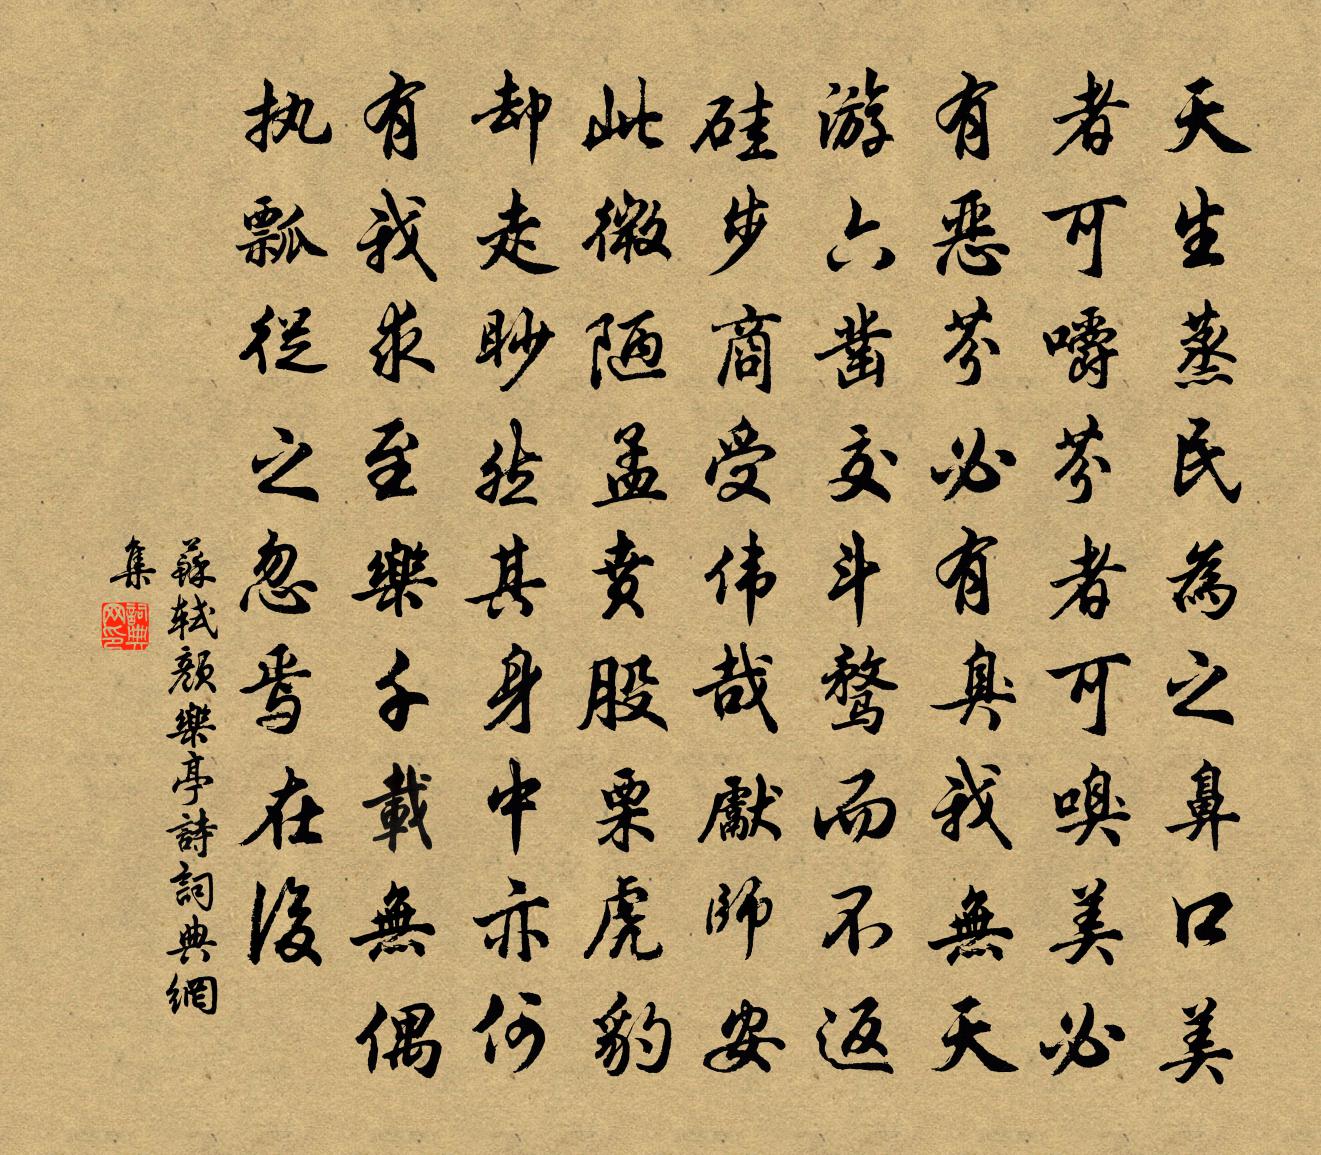 天生蒸民為之鼻口美
者可嚼芬者可嗅美必
有惡芬必有臭我無天
游六凿交斗鹜而不返
硅步商受伟哉獻師安
此微陋孟賁股栗虎豹
却走眇然其身中亦何
有我求至樂千載無偶
执瓢從之忽焉在後
蘇轼顔樂亭詩詞典網
集
詞典网印